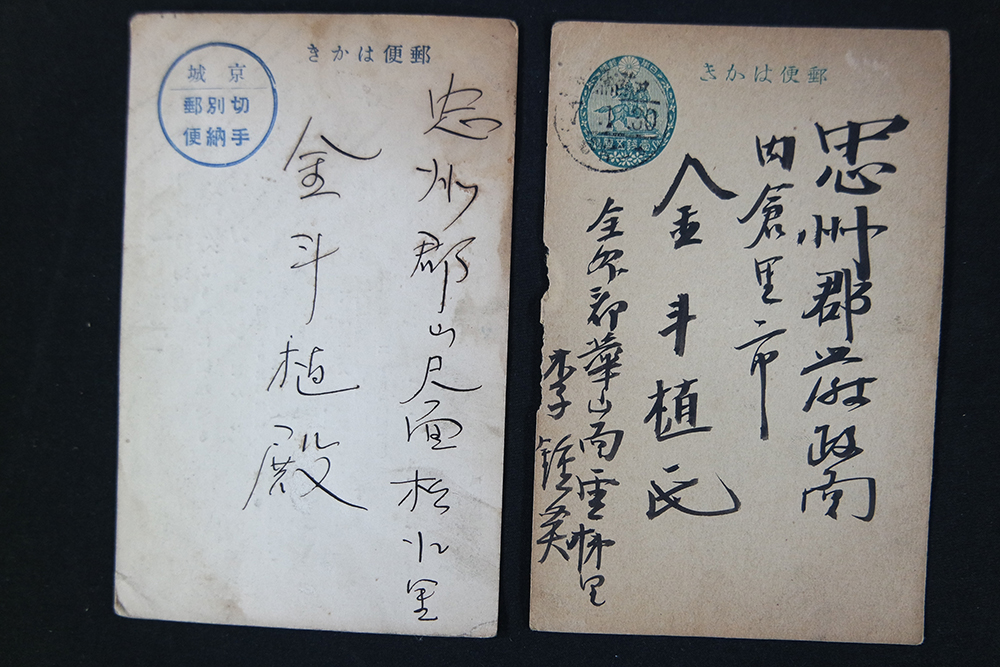 郵便はかき
京城
切手
別納
郵便
忠州郡山尺面松江里
金斗植殿
郵便はかき
忠州郡嚴政面
内倉里市
金斗植氏
全州郡華山面雲梯里